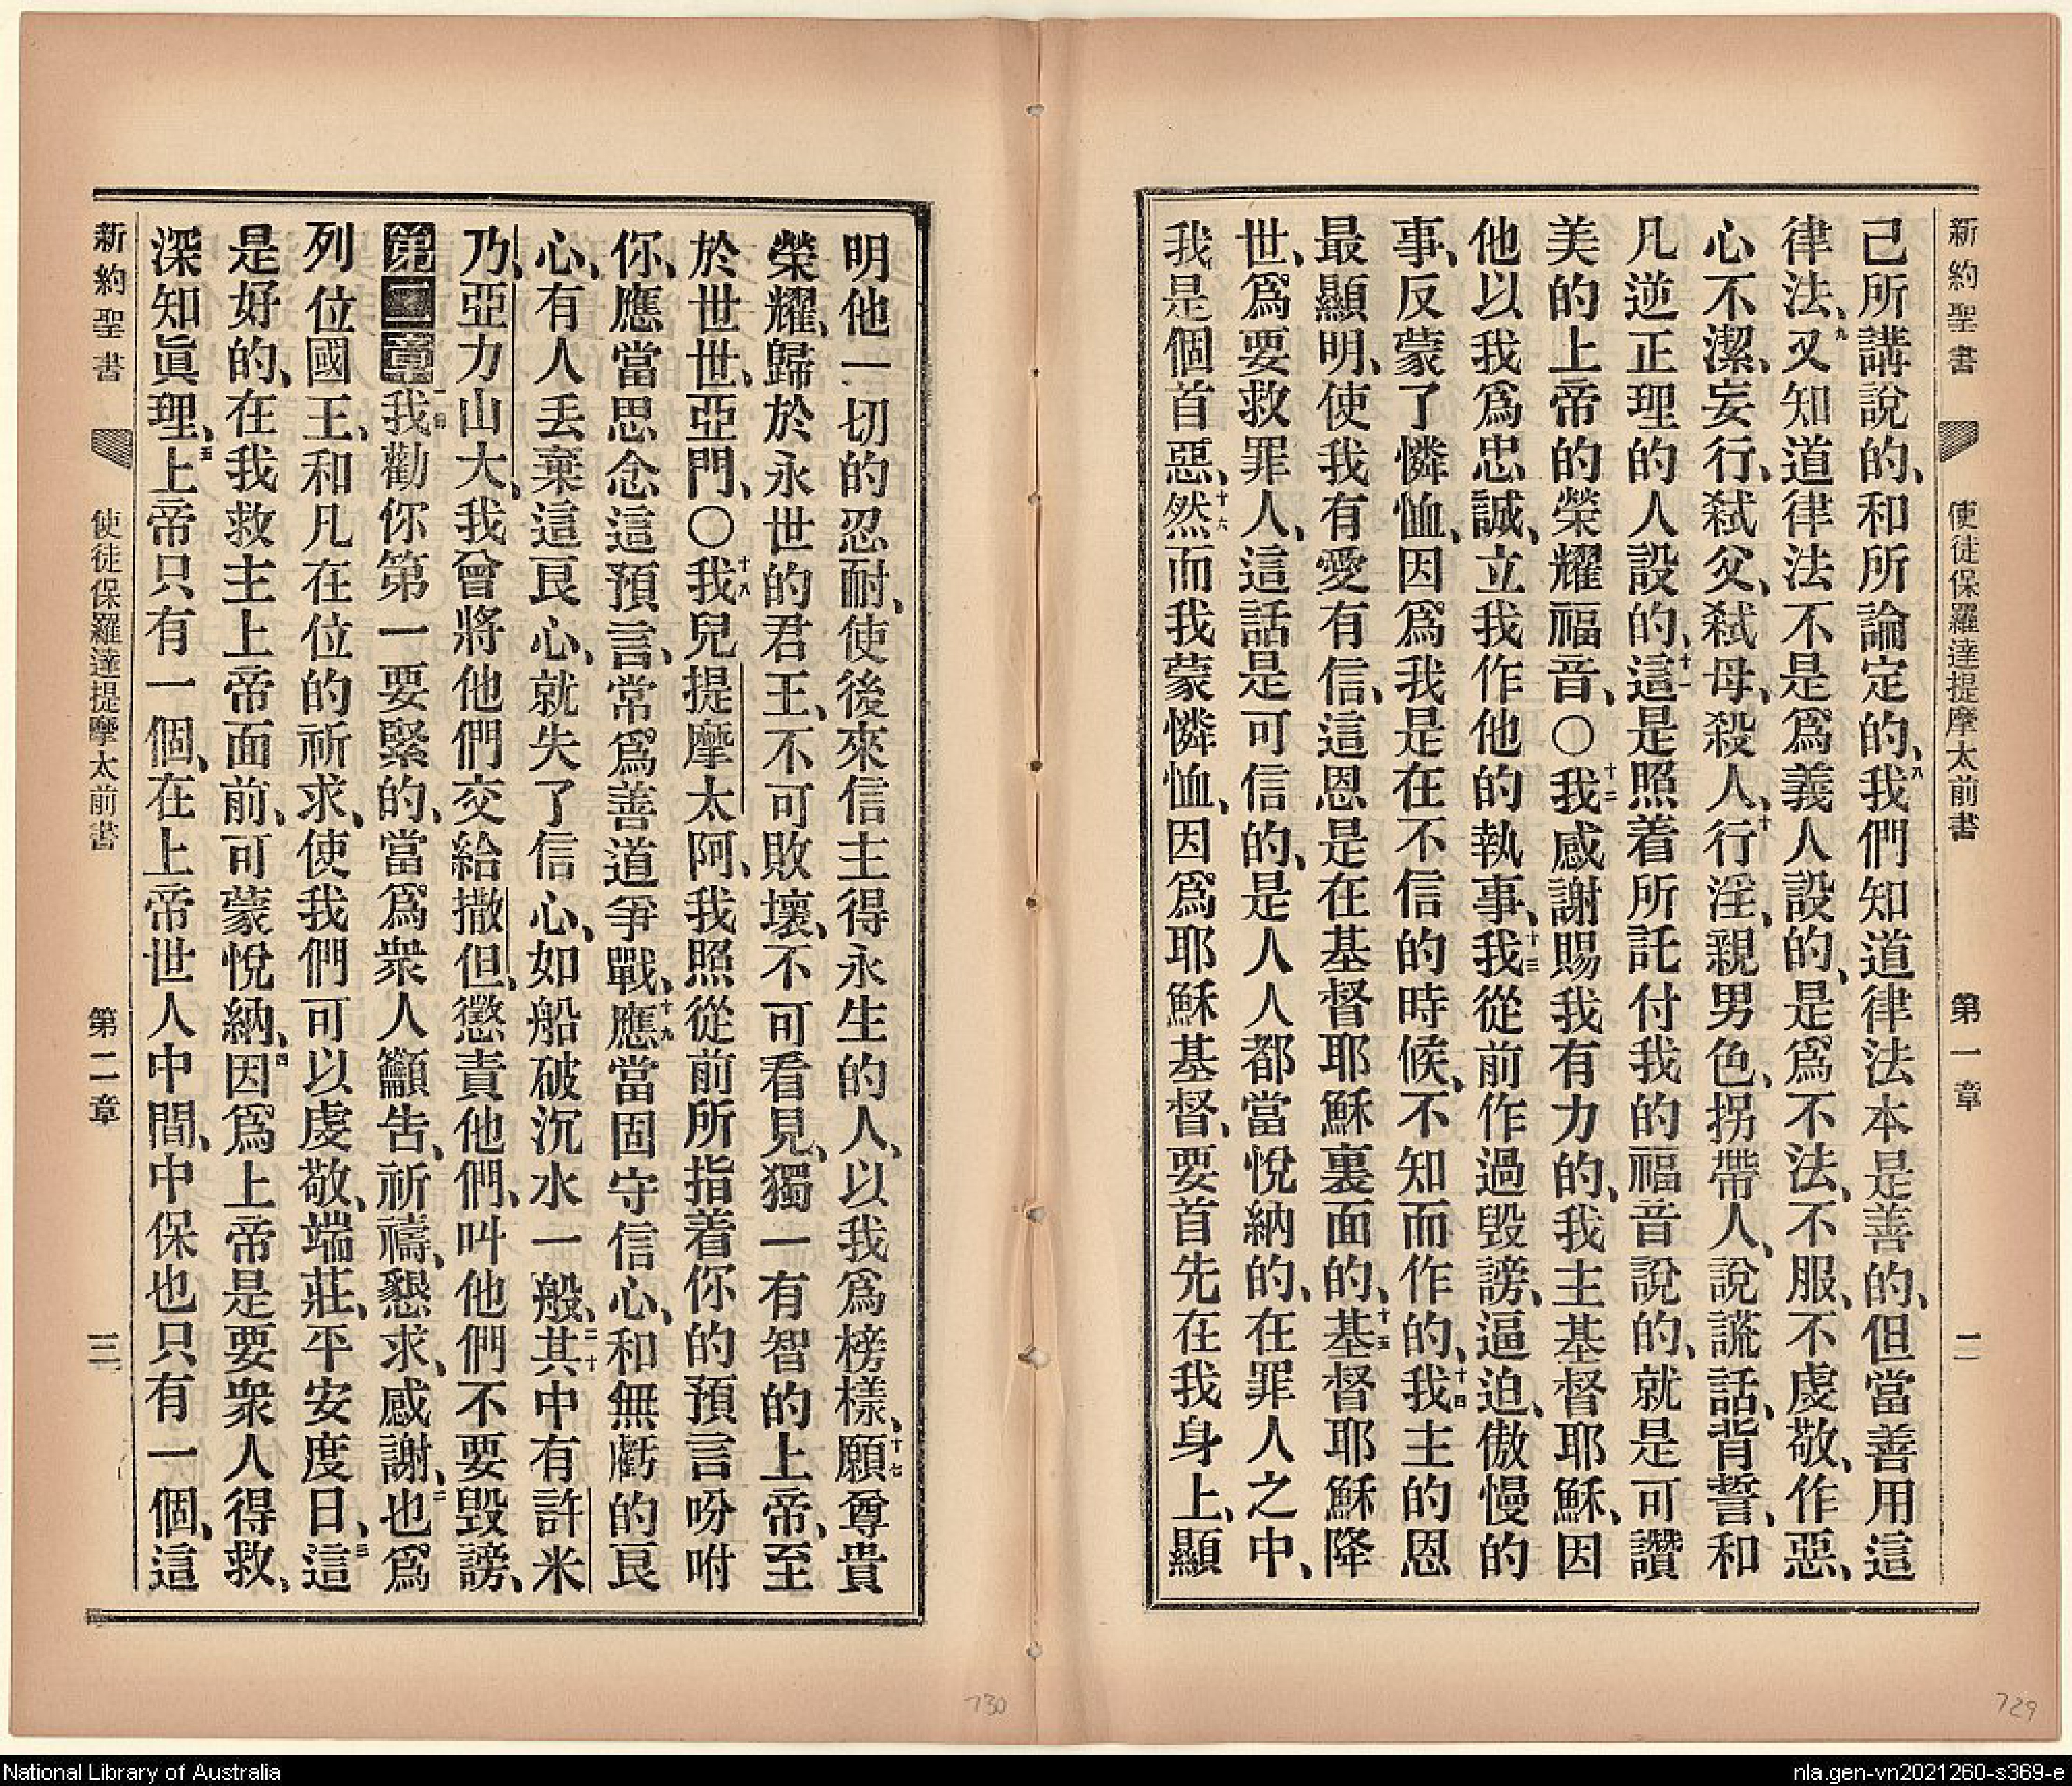 新約聖書 使徒保羅達提摩太前書 第一章 二
己所講說的、和所論定的、八我們知道律法本是善的、但當善用這
律法、九又知道律法不是爲義人設的、是爲不法、不服、不虔敬、作惡、
心不潔、妄行、弒父、弒母、殺人、十行淫、親男色、拐帶人、說謊話、背誓、和
凡逆正理的人設的、十一這是照着所託付我的福音說的、就是可讚
美的上帝的榮耀福音、〇十二我感謝賜我有力的、我主基督耶穌、因
他以我爲忠誠、立我作他的執事、十三我從前作過毀謗、逼迫、傲慢的
事、反蒙了憐恤、因爲我是在不信的時候、不知而作的、十四我主的恩
最顯明、使我有愛有信、這恩是在基督耶穌裏面的、十五基督耶穌降
世、爲要救罪人、這話是可信的、是人人都當悅納的、在罪人之中、
我是個首惡、十六然而我蒙憐恤、因爲耶穌基督、要首先在我身上、顯
明他一切的忍耐、使後來信主得永生的人、以我爲榜樣、十七願尊貴
榮耀、歸於永世的君王、不可敗壞、不可看見、獨一有智的上帝、至
於世世、亞門、〇十八我兒提摩太阿、我照從前所指着你的預言吩咐
你、應當思念這預言、常爲善道爭戰、十九應當固守信心、和無虧的良
心、有人丟棄這良心、就失了信心、如船破沉水一般、二十其中有許米
乃、亞力山大、我曾將他們交給撒但、懲責他們、叫他們不要毀謗、
第二章一我勸你第一要緊的、當爲衆人籲告、祈禱、懇求、感謝、二也爲
列位國王、和凡在位的祈求、使我們可以虔敬、端莊、平安度日、三這
是好的、在我救主上帝面前、可蒙悅納、四因爲上帝是要衆人得救、
深知眞理、五上帝只有一個、在上帝世人中間、中保也只有一個、這
新約聖書 使徒保羅達提摩太前書 第二章 三
730
729
National Library of Australia
nla.gen-vn2021260-s369-e